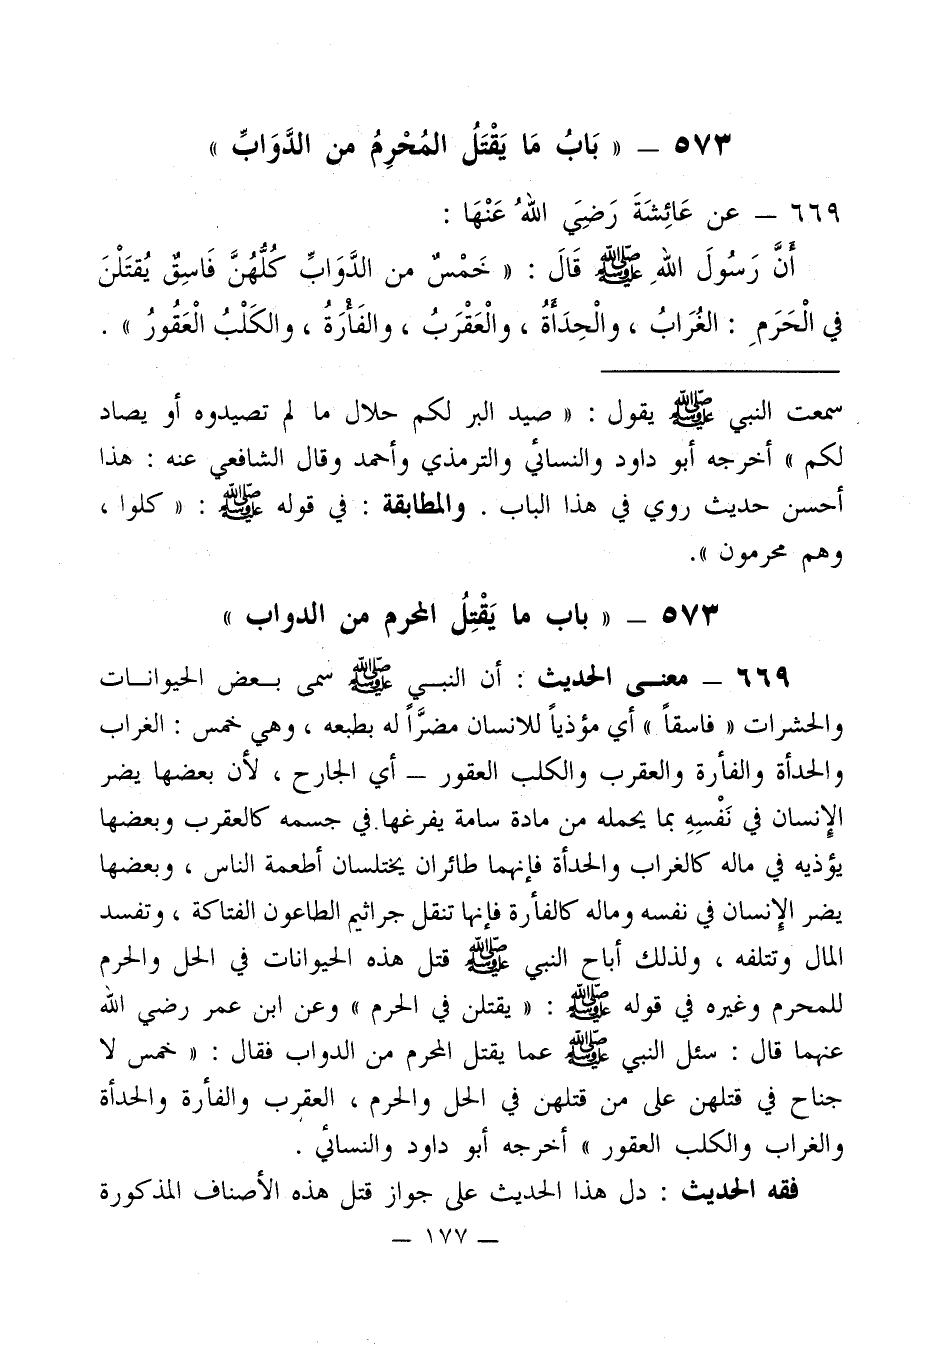 ٥٧٣ – « بَابُ مَا يَقْتَلُ المُحْرِمُ من الدَّوَابِّ »
٦٦٩ – عن عَائِشَةَ رَضِيَ اللهُ عَنْهَا :
أَنَّ رَسُولَ اللهِ ﷺ قَالَ : « خَمْسٌ من الدَّوَابِّ كُلُّهُنَّ فَاسِقٌ يُقتَلْنَ
في الْحَرَمِ : الغُرَابُ ، والْحِدَأَةُ ، والْعَقْرَبُ ، والفَأْرَةُ ، والكَلْبُ العَقُورُ » .
سمعت النبي ﷺ يقول : « صيد البر لكم حلال ما لم تصيدوه أو يصاد
لكم » أخرجه أبو داود والنسائي والترمذي وأحمد وقال الشافعي عنه : هذا
أحسن حديث روي في هذا الباب . والمطابقة : في قوله ﷺ : « كلوا ،
وهم محرمون ».
٥٧٣ – « باب ما يَقْتِلُ المحرم من الدواب »
٦٦٩ – معنى الحديث : أن النبي ﷺ سمى بعض الحيوانات
والحشرات « فاسقاً » أي مؤذياً للانسان مضرّاً له بطبعه ، وهي خمس : الغراب
والحدأة والفأرة والعقرب والكلب العقور – أي الجارح ، لأن بعضها يضر
الإنسان في نَفْسِهِ بما يحمله من مادة سامة يفرغها في جسمه كالعقرب وبعضها
يؤذيه في ماله كالغراب والحدأة فإنهما طائران يختلسان أطعمة الناس ، وبعضها
يضر الإنسان في نفسه وماله كالفأرة فإنها تنقل جراثيم الطاعون الفتاكة ، وتفسد
المال وتتلفه ، ولذلك أباح النبي ﷺ قتل هذه الحيوانات في الحل والحرم
للمحرم وغيره في قوله ﷺ : « يقتلن في الحرم » وعن ابن عمر رضي الله
عنهما قال : سئل النبي ﷺ عما يقتل المحرم من الدواب فقال : « خمس لا
جناح في قتلهن على من قتلهن في الحل والحرم ، العقرب والفأرة والحدأة
والغراب والكلب العقور » أخرجه أبو داود والنسائي .
فقه الحديث : دل هذا الحديث على جواز قتل هذه الأصناف المذكورة
– ١٧٧ –